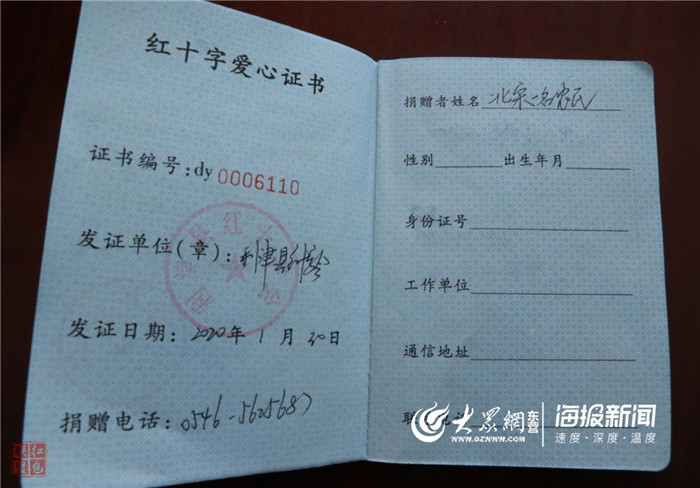 红十字爱心证书
证书编号:dy 0006110
发证单位(章):利津县
发证日期: 2020年 1 月 30日
捐赠电话: 0546-5625687
捐赠者姓名 北宋一名农民
性别 出生年月
身份证号
工作单位
通信地址
大众網 东营 海报新闻
www.dzwww.com 速度·深度·温度